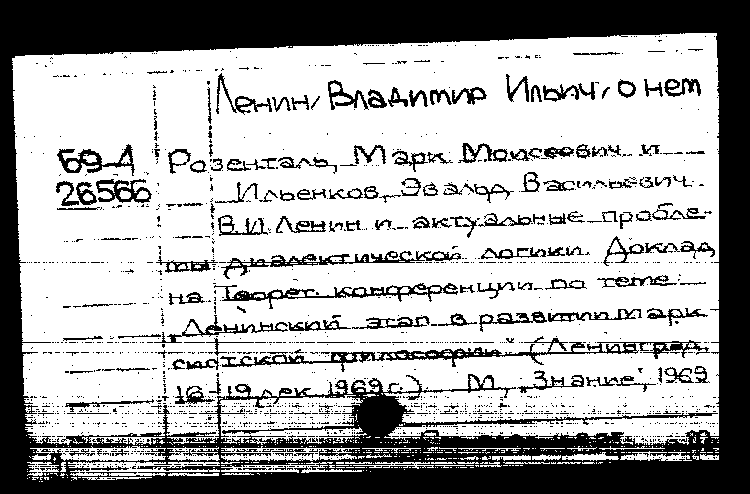 Ленин, Владимир Ильич, о нем
69-4 Розенталь, Марк Моисеевич и
26566 Ильенков, Эвальд Васильевич.
В.И. Ленин и актуальные пробле-
мы диалектической логики. Доклад
на Теорет. конференции по теме:
"Ленинский этап в развитии марк-
систской философии" (Ленинград,
16-19 дек. 1969 г.) М., "Знание", 1969